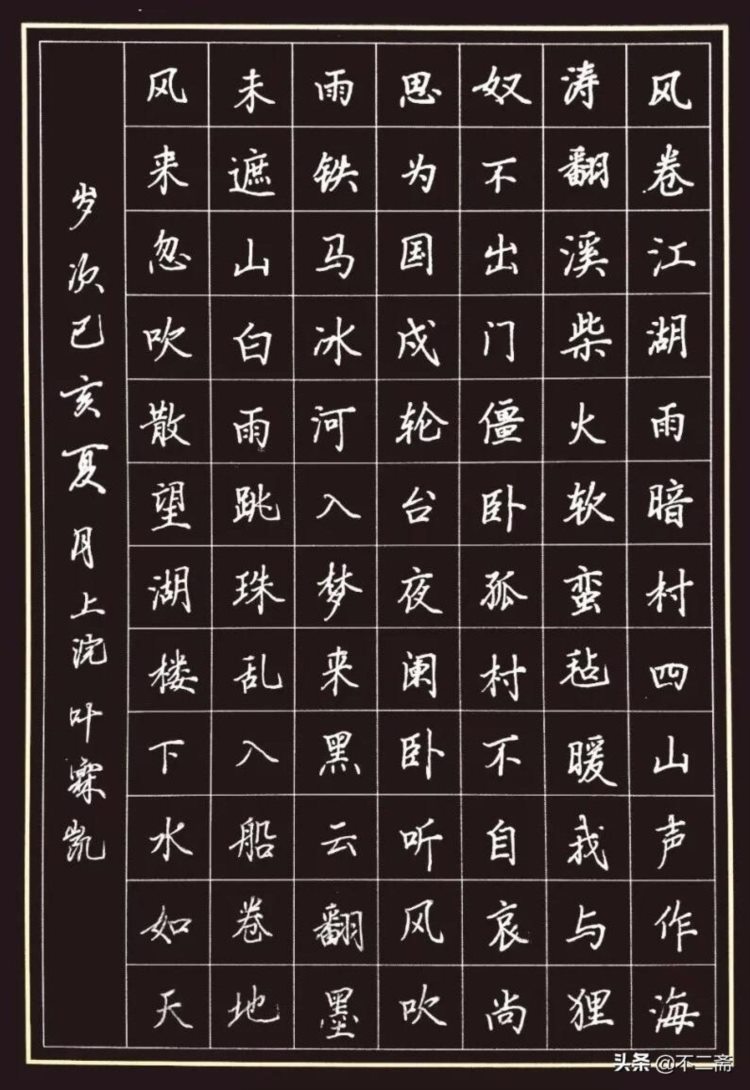 风卷江湖雨暗村四山声作海
涛翻溪柴火软蛮毡暖我与狸
奴不出门僵卧孤村不自哀尚
思为国戍轮台夜阑卧听风吹
雨铁马冰河入梦来黑云翻墨
未遮山白雨跳珠乱入船卷地
风来忽吹散望湖楼下水如天
岁次己亥夏月上浣叶霖凯
头条@不二斋